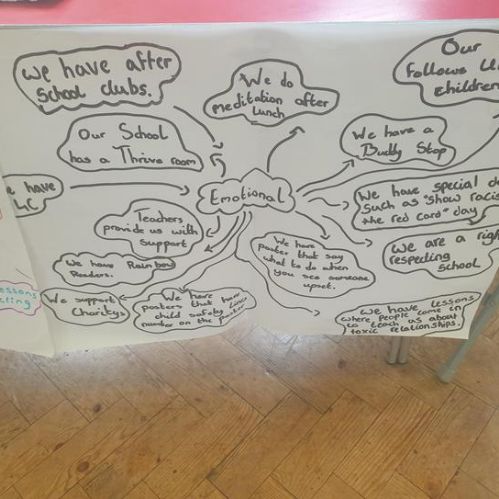 We have after
school clubs.
We do
meditation after
lunch
Our
follows
children
Our School
has a Thrive room
We have a
Buddy Stop
have
Emotional
We have special
such as "show racis
the red card" day
Teachers
provide us with
support
We have
poster that say
what to do when
you see someone
upset.
We are a righ
respecting
school
We have Rainbow
Readers.
We support
Charitys
We have
posters that have
child safety line
number on the poster
We have lessons
where people come in
to teach us about
toxic relationships.
essons